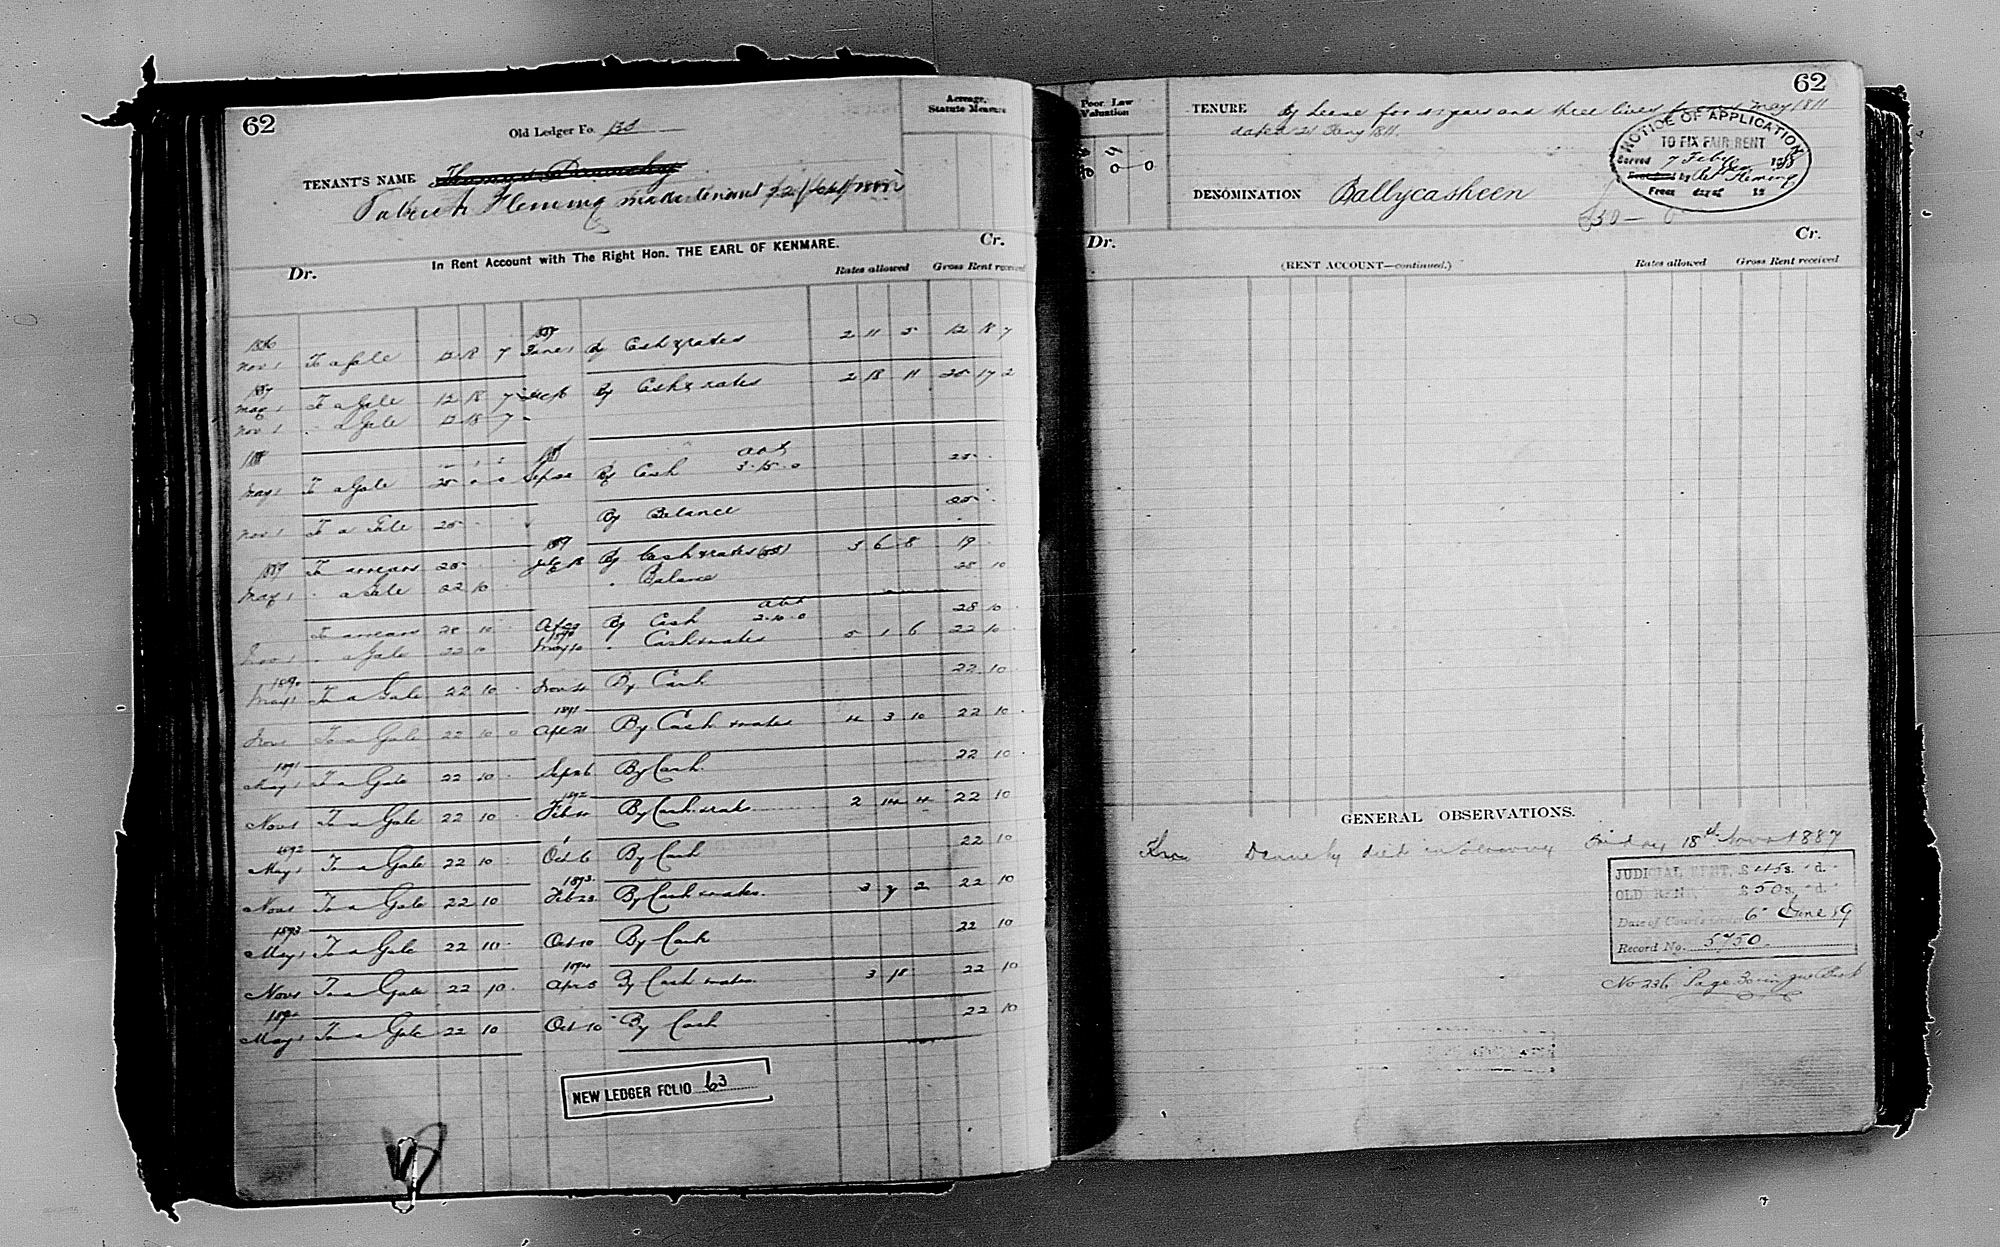 62
Old Ledger Fo.
Acreage, Statute Measure
TENANT'S NAME
Patrick Fleming made tenant
In Rent Account with The Right Hon. THE EARL OF KENMARE.
Dr. Cr.
Rates allowed Gross Rent received
1886 1887
Nov 1 To a Gale 12 18 7 June 1 By Cash & rates 2 11 5 12 18 7
1887
May 1 To a Gale 12 18 7 By Cash & rates 2 18 11 25 17 2
Nov 1 " a Gale 12 18 7
1888 1888 abt
May 1 To a Gale 25 By Cash 3-15-0 25
Nov 1 To a Gale 25 By Balance 25
1889 1889
To arrears 25 By Cash & rates 3 6 8 19
May 1 " a Gale 22 10 " Balance 28 10
abt
To arrears 28 10 By Cash 2-10-0 28 10
1890
Nov 1 " a Gale 22 10 May 10 " Cash & rates 5 1 6 22 10
1890
May 1 To a Gale 22 10 By Cash 22 10
1891
Nov 1 To a Gale 22 10 0 Apl 21 By Cash & rates 4 3 10 22 10
1891
May 1 To a Gale 22 10 Sep 26 By Cash 22 10
1892
Nov 1 To a Gale 22 10 By Cash & rates 2 14 4 22 10
1892
May 1 To a Gale 22 10 Oct 6 By Cash 22 10
1893
Nov 1 To a Gale 22 10 Feb 23 By Cash & rates. 3 7 2 22 10
1893
May 1 To a Gale 22 10 Oct 10 By Cash 22 10
1894
Nov 1 To a Gale 22 10 Apr 5 By Cash & rates. 3 18 22 10
1894
May 1 To a Gale 22 10 Oct 10 By Cash 22 10
NEW LEDGER FOLIO 63
62
Poor Law Valuation
TENURE By Lease for 41 years and three lives from 1 May 1811
dated 21 Jany 1811.
NOTICE OF APPLICATION
TO FIX FAIR RENT
Served 7 Feby
by Fleming
From day of 18
DENOMINATION Ballycasheen
£50 - 0
Dr. (RENT ACCOUNT—continued.) Cr.
Rates allowed Gross Rent received
GENERAL OBSERVATIONS.
Dennehy died Friday 18th Novr 1887
JUDICIAL RENT, £45 s. d.
OLD RENT, £50 s. d.
Date of Court's Order 6 June 89
Record No. 5750
No 236 Page 30